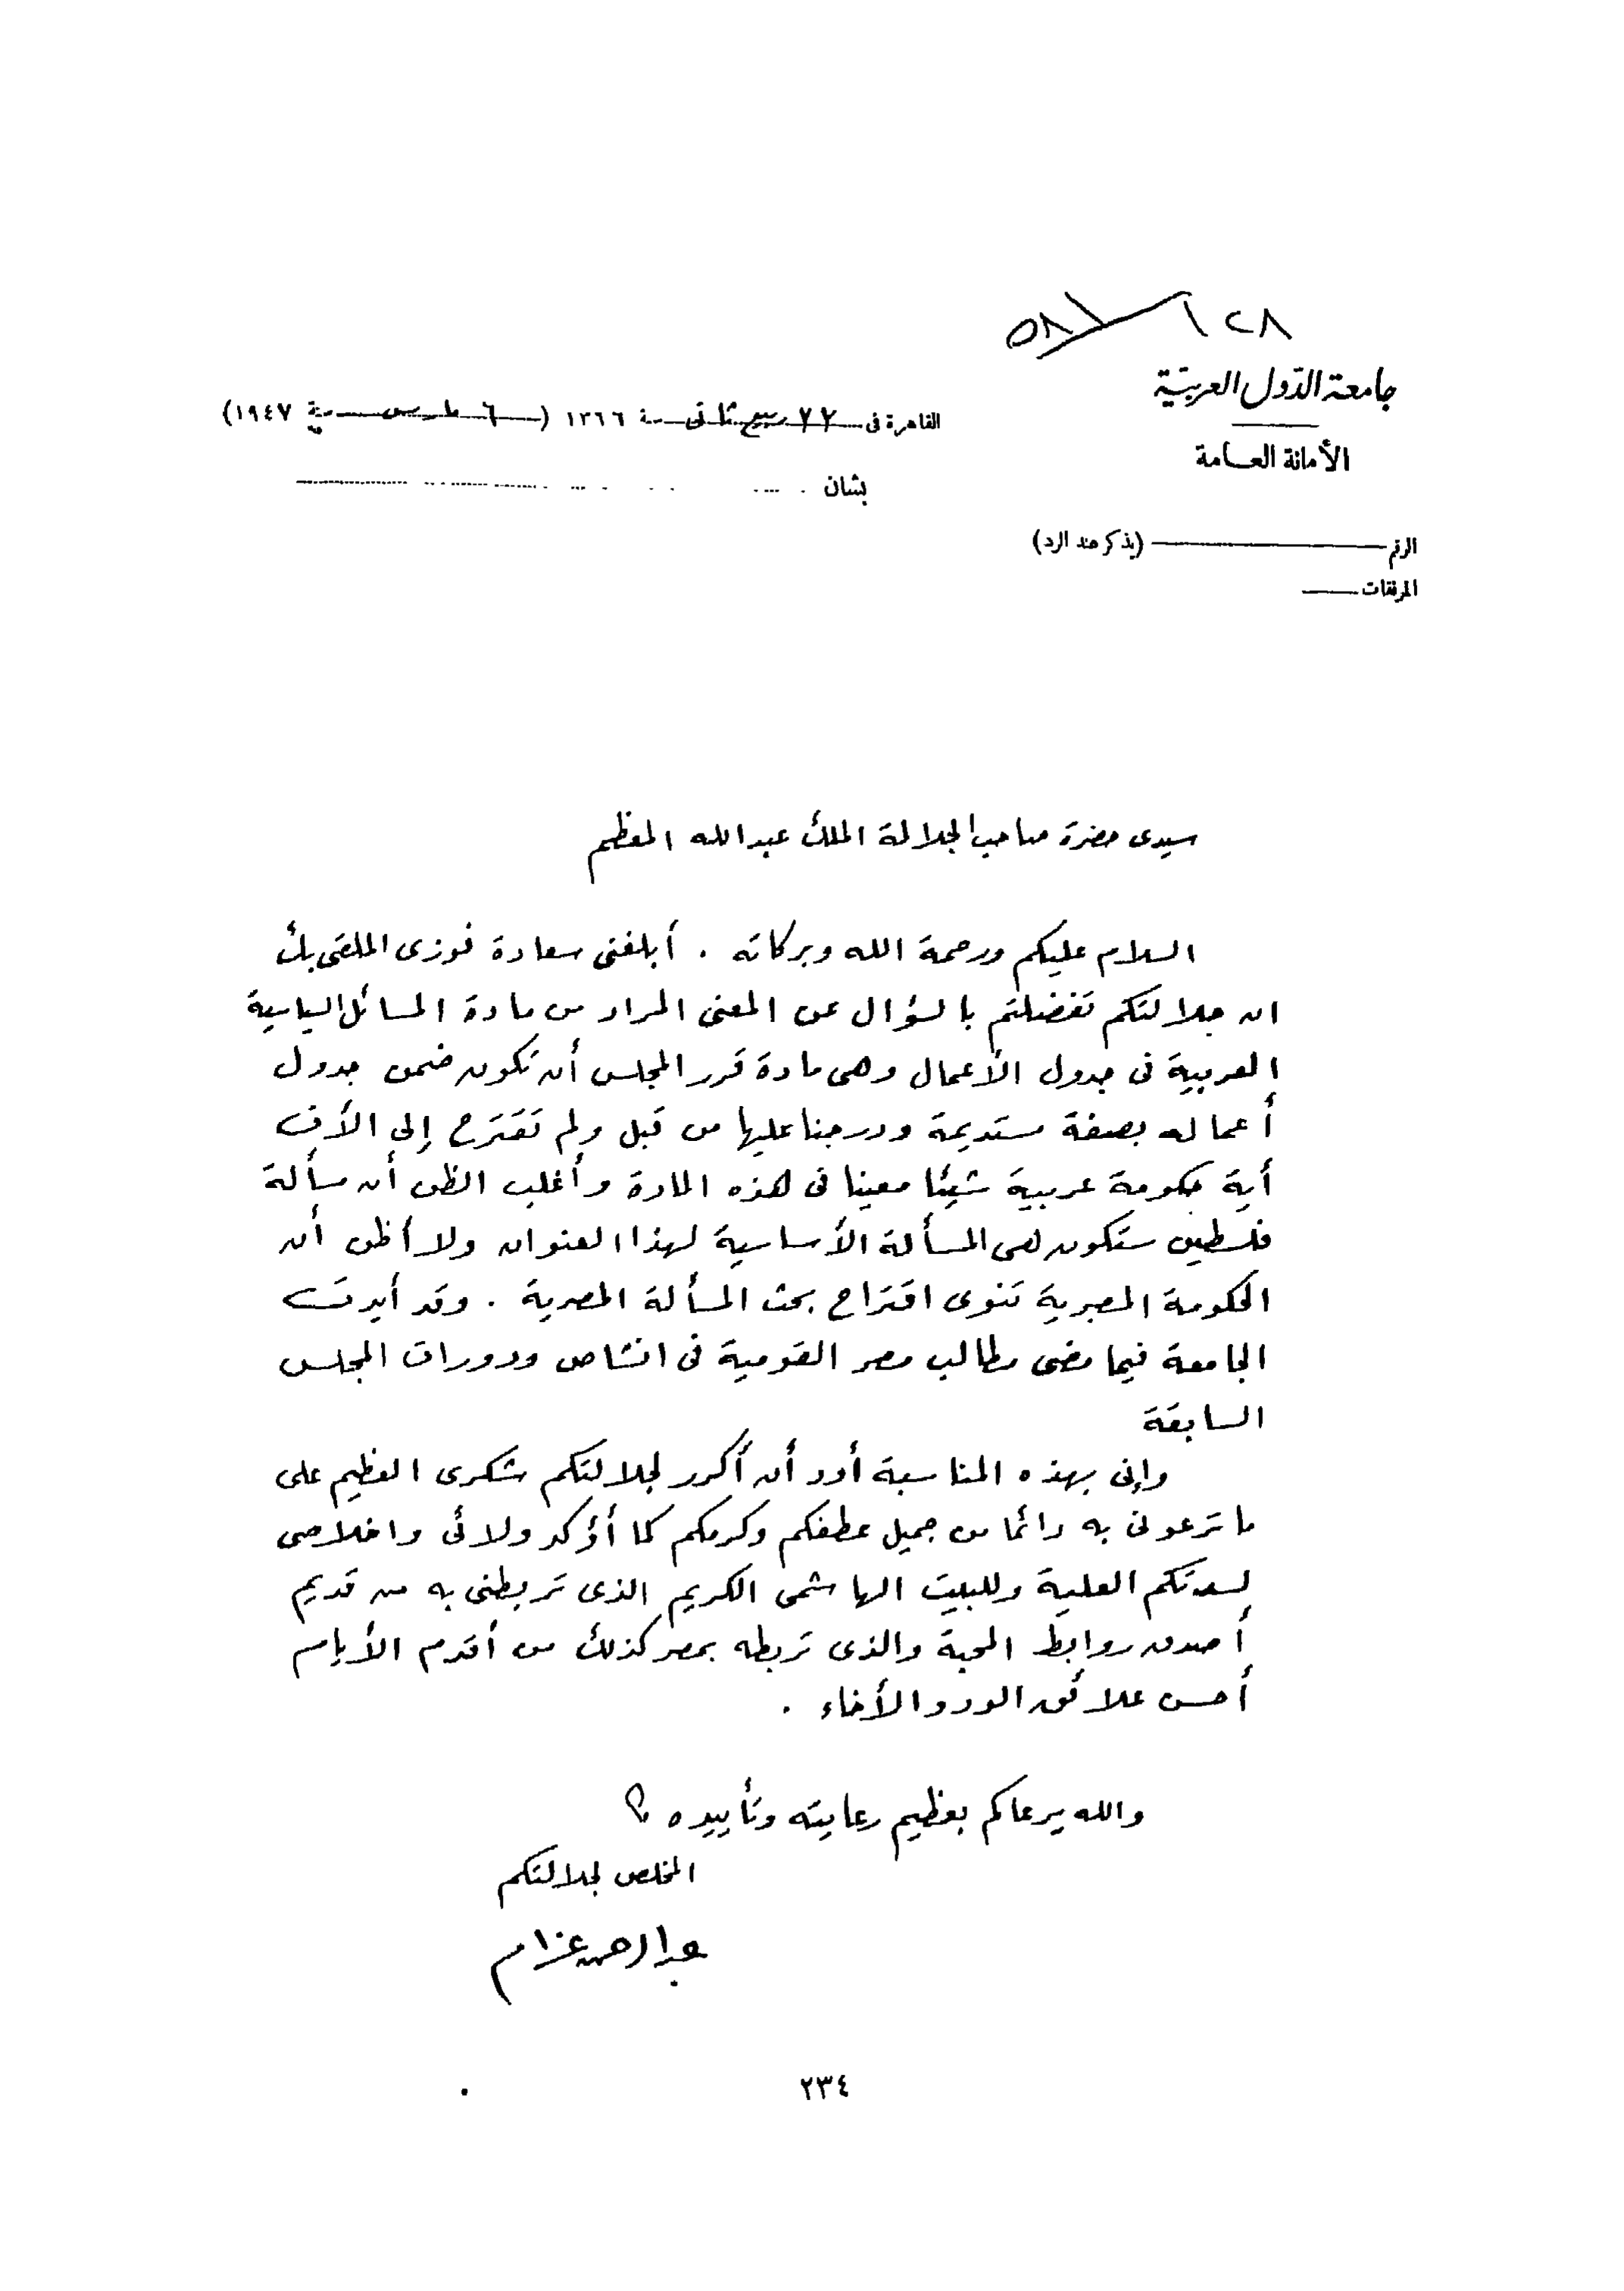 جامعة الدول العربية
الأمانة العامة
القاهرة فى ٢٢ ربيع ثانى سنة ١٣٦٦ (٦ مارس سنة ١٩٤٧)
بشأن
الرقم (يذكر عند الرد)
المرفقات
سيدى حضرة صاحب الجلالة الملك عبد الله المعظم
السلام عليكم ورحمة الله وبركاته . أبلغنى سعادة فوزى الملقى بك
ان جلالتكم تفضلتم بالسؤال عن المعنى المراد من مادة المسائل السياسية
العربية فى جدول الأعمال وهى مادة قرر المجلس أن تكون ضمن جدول
أعماله بصفة مستديمة ودرجنا عليها من قبل ولم تقترح إلى الأن
أية حكومة عربية شيئا معينا فى هذه المادة وأغلب الظن أن مسألة
فلسطين ستكون هى المسألة الأساسية لهذا العنوان ولا أظن أن
الحكومة المصرية تنوى اقتراح بحث المسألة المصرية . وقد أيدت
الجامعة فيما مضى مطالب مصر القومية فى انشاص ودورات المجلس
السابقة
وإنى بهذه المناسبة أود أن أكرر لجلالتكم شكرى العظيم على
ما ترعونى به دائما من جميل عطفكم وكرمكم كما أؤكد ولائى واخلاصى
لسدتكم العلية وللبيت الهاشمى الكريم الذى تربطنى به من قديم
أصدق روابط المحبة والذى تربطه بمصر كذلك من أقدم الأيام
أحسن علائق الود والأخاء .
والله يرعاكم بعظيم رعايته وتأييده
المخلص لجلالتكم
عبد الرحمن عزام
٢٣٤